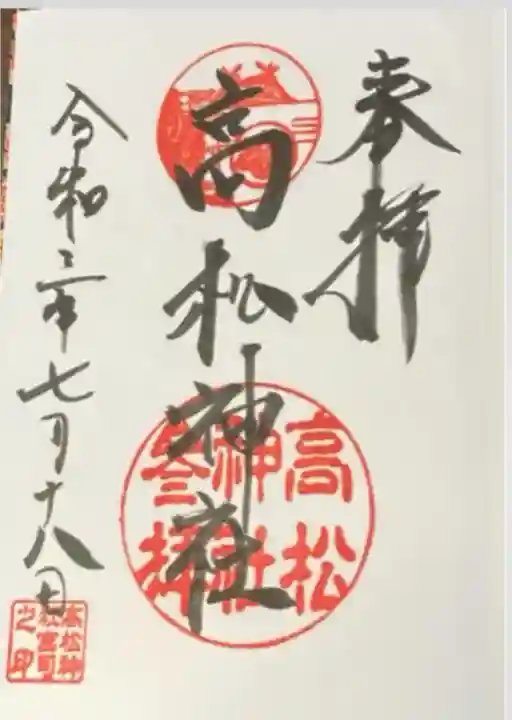 奉拝
高松神社
令和三年七月十八日
高松
神社
参拝
高松神
社宮司
之印